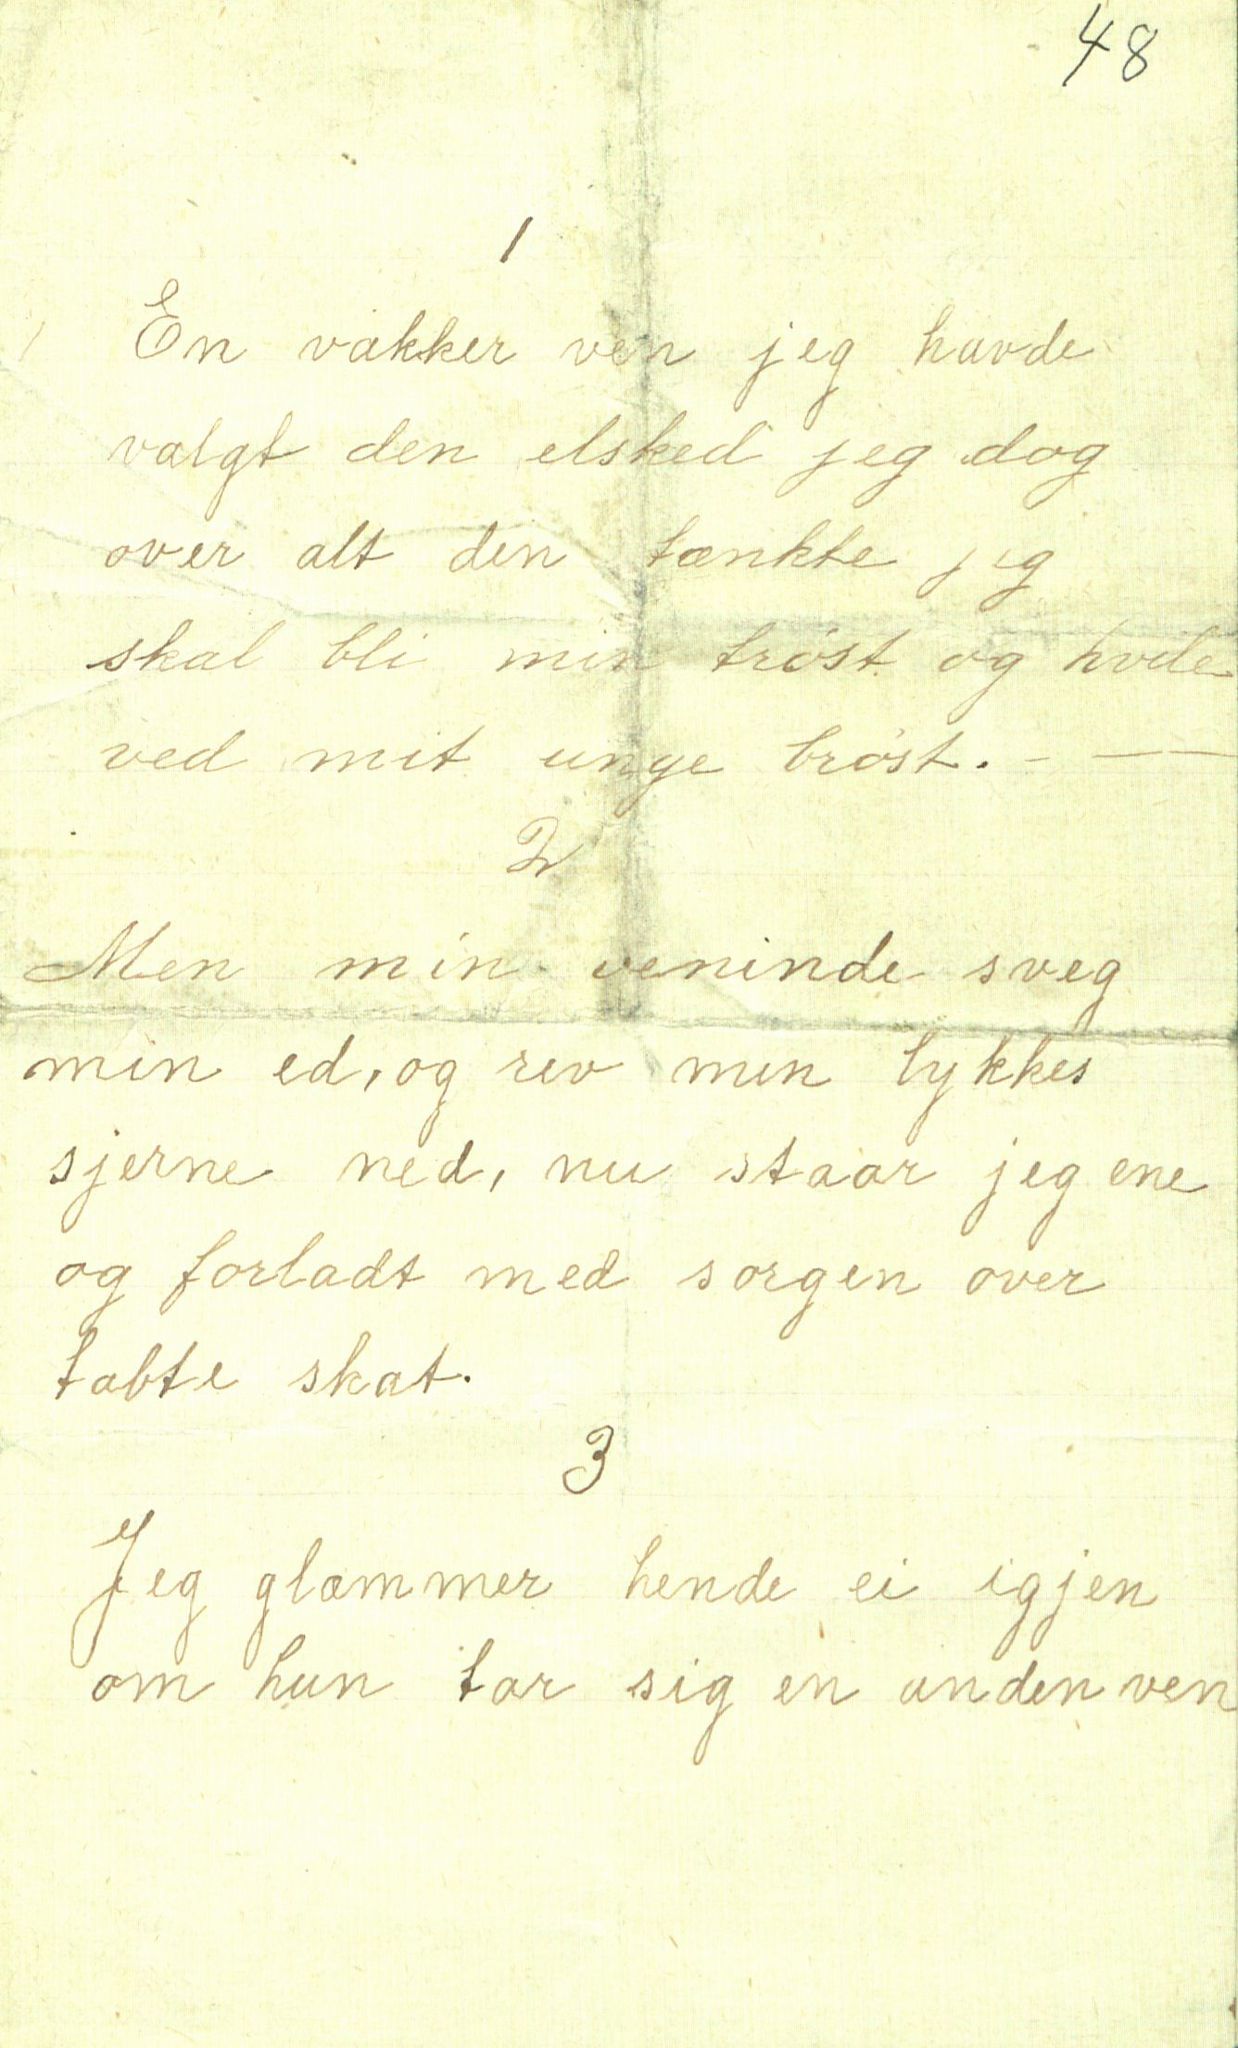 48
1
En vakker ven jeg havde
valgt den elsked jeg dog
over alt den tænkte jeg
skal bli min trøst og hvile
ved mit unge brøst. - — —
2
Men min veninde sveg
min ed, og rev min lykkes
sjerne ned, nu staar jeg ene
og forladt med sorgen over
tabte skat.
3
Jeg glæmmer hende ei igjen
om hun tar sig en anden ven